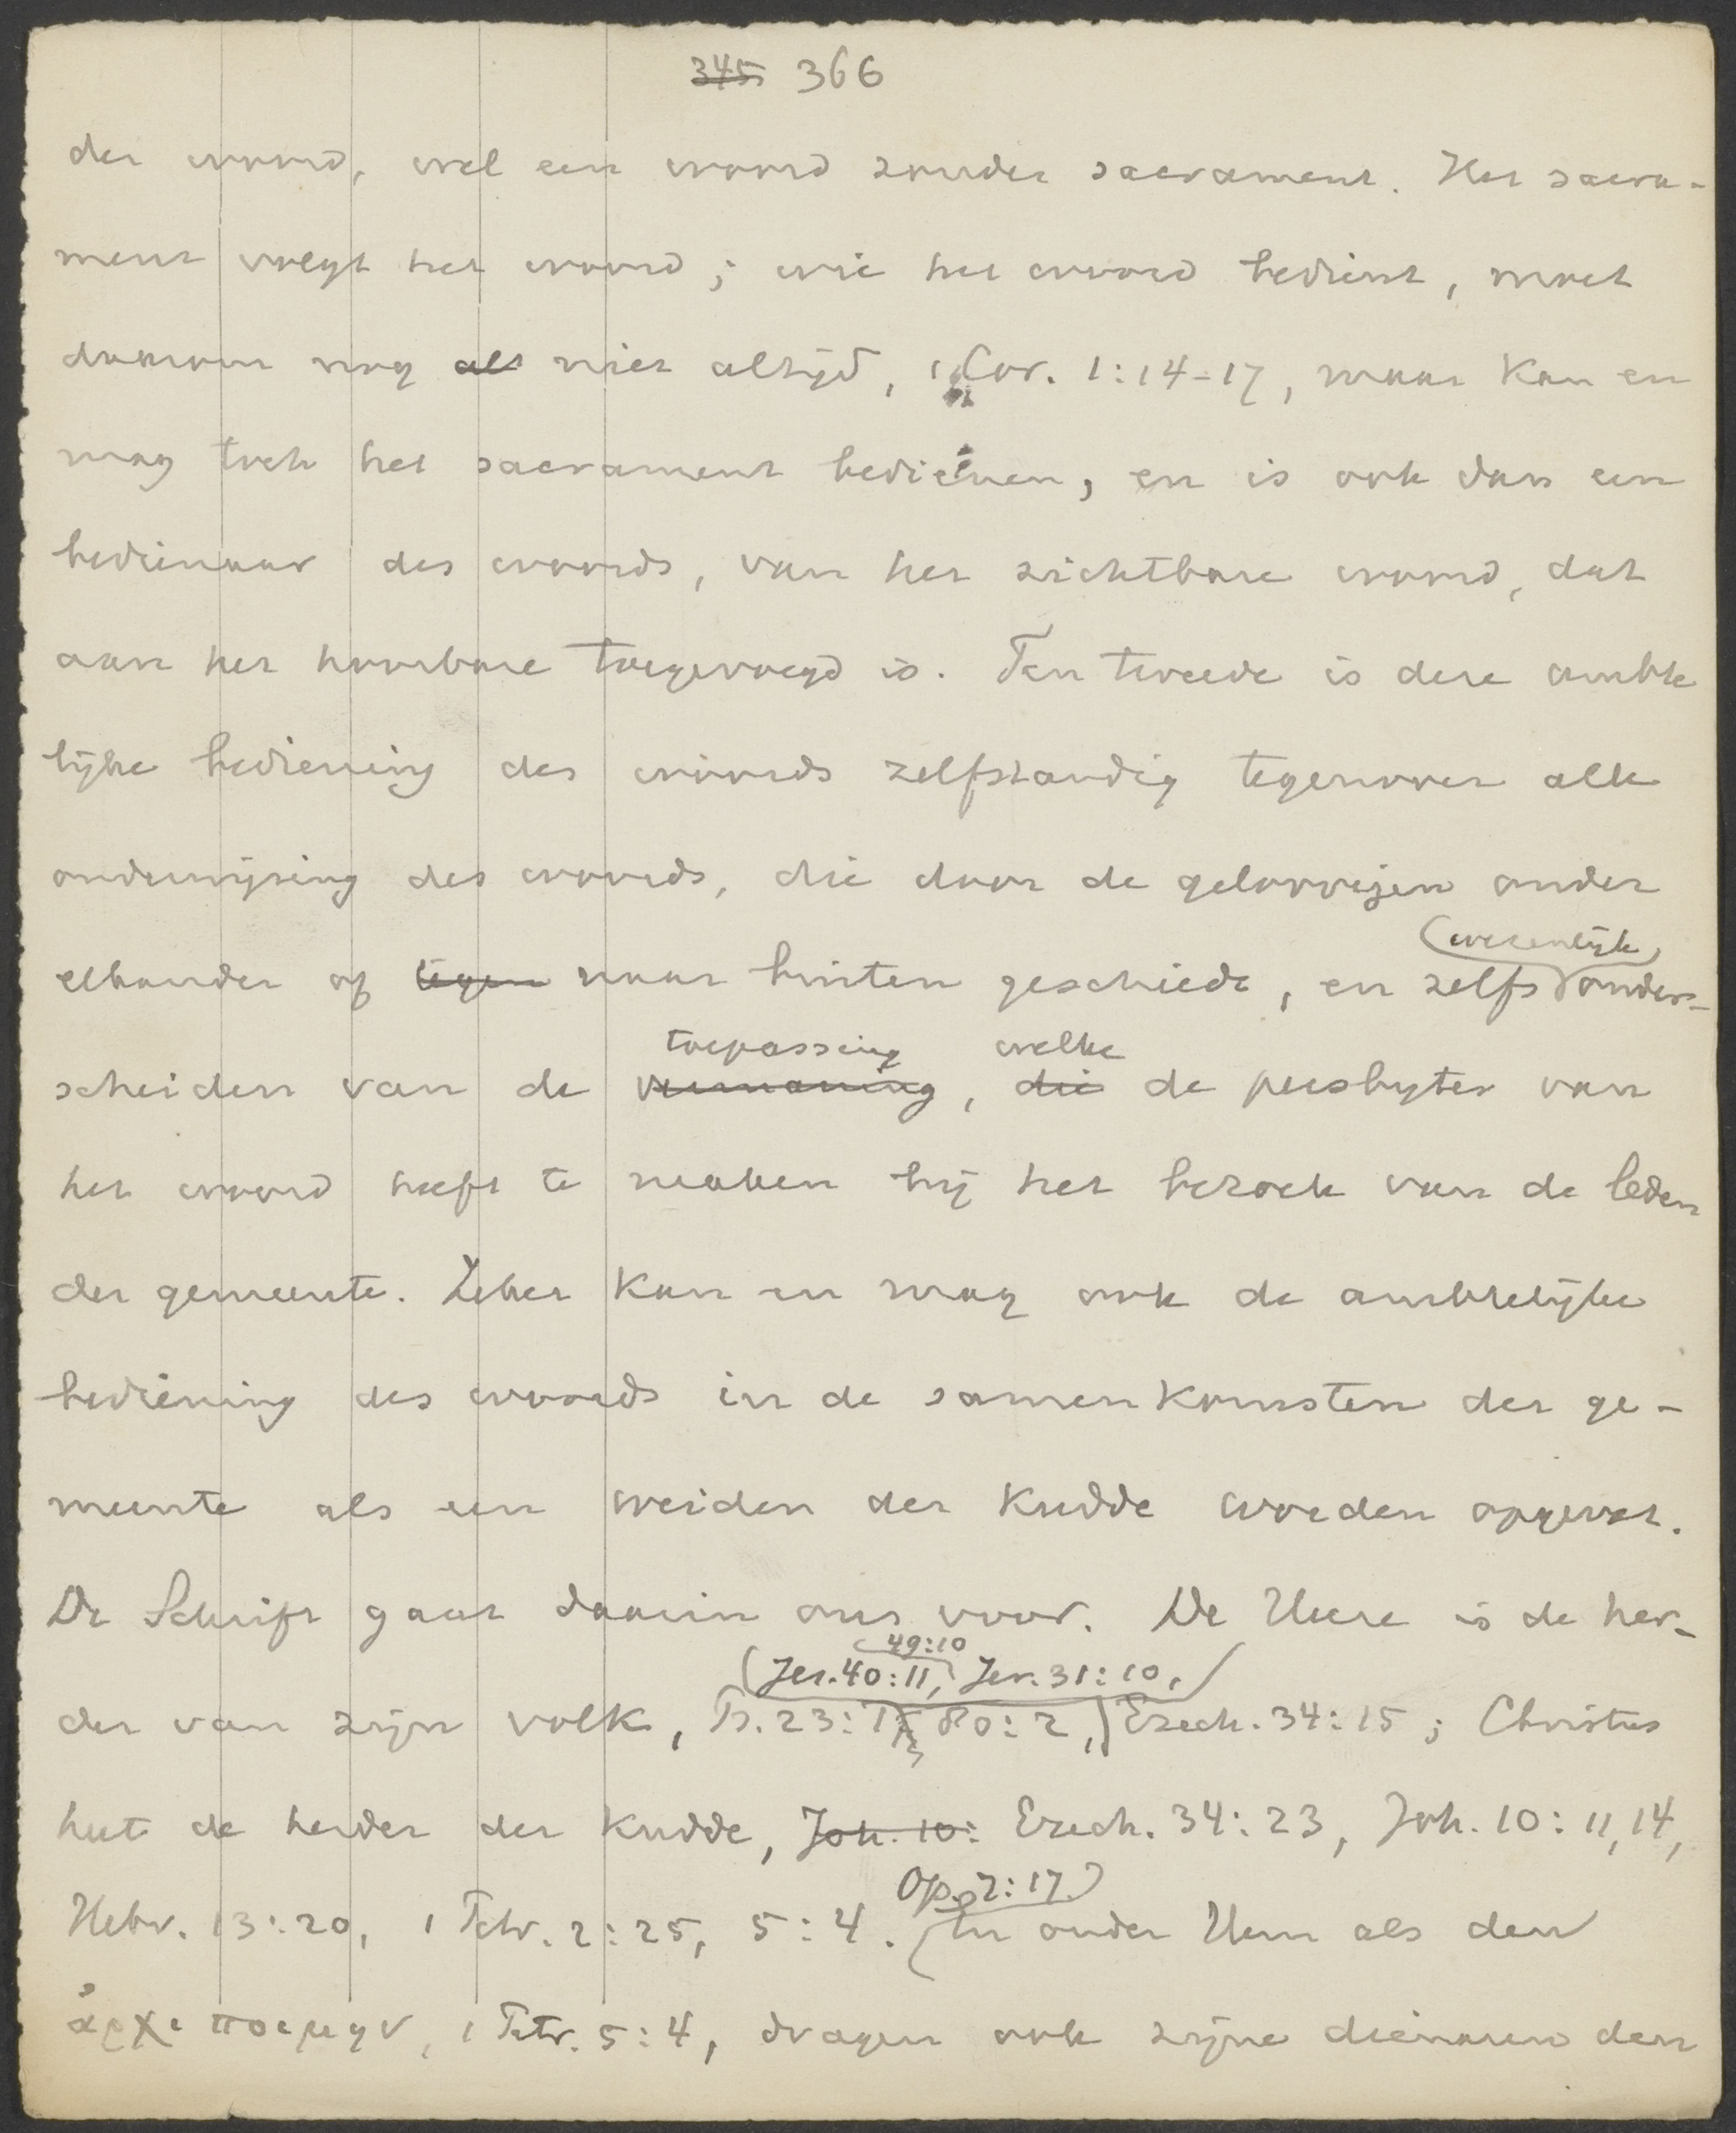 345 366
der woord, wel een woord zonder sacrament. Het sacra-
ment volgt het woord; wie het woord bedient, moet
daarom nog als niet altijd, 1 Cor. 1:14-17, maar kan en
mag toch het sacrament bedienen, en is ook dan een
bedienaar des woords, van het zichtbare woord, dat
aan het hoorbare toegevoegd is. Ten tweede is deze ambte
lijke bediening des woords zelfstandig tegenover alle
onderwijzing des woords, die door de geloovigen onder
wezenlijk
elkander of tegen naar buiten geschiedt, en zelfs onder-
toepassing welke
scheiden van de vermaning, die de presbyter van
het woord heeft te maken bij het bezoek van de leden
der gemeente. Zeker kan en mag ook de ambtelijke
bediening des woords in de samenkomsten der ge-
meente als een weiden der kudde worden opgevat.
De Schrift gaat daarin ons voor. De Heere is de her-
49:10
Jes. 40:11, Jer. 31:10,
der van zijn volk, Ps. 23:1, 80:2, Ezech. 34:15; Christus
heet de herder der kudde, Joh. 10: Ezech. 34:23, Joh. 10:11, 14,
Op. 7:17.
Hebr. 13:20, 1 Petr. 2:25, 5:4. En onder Hem als den
ἀρχιποιμην, 1 Petr. 5:4, dragen ook zijne dienaren den